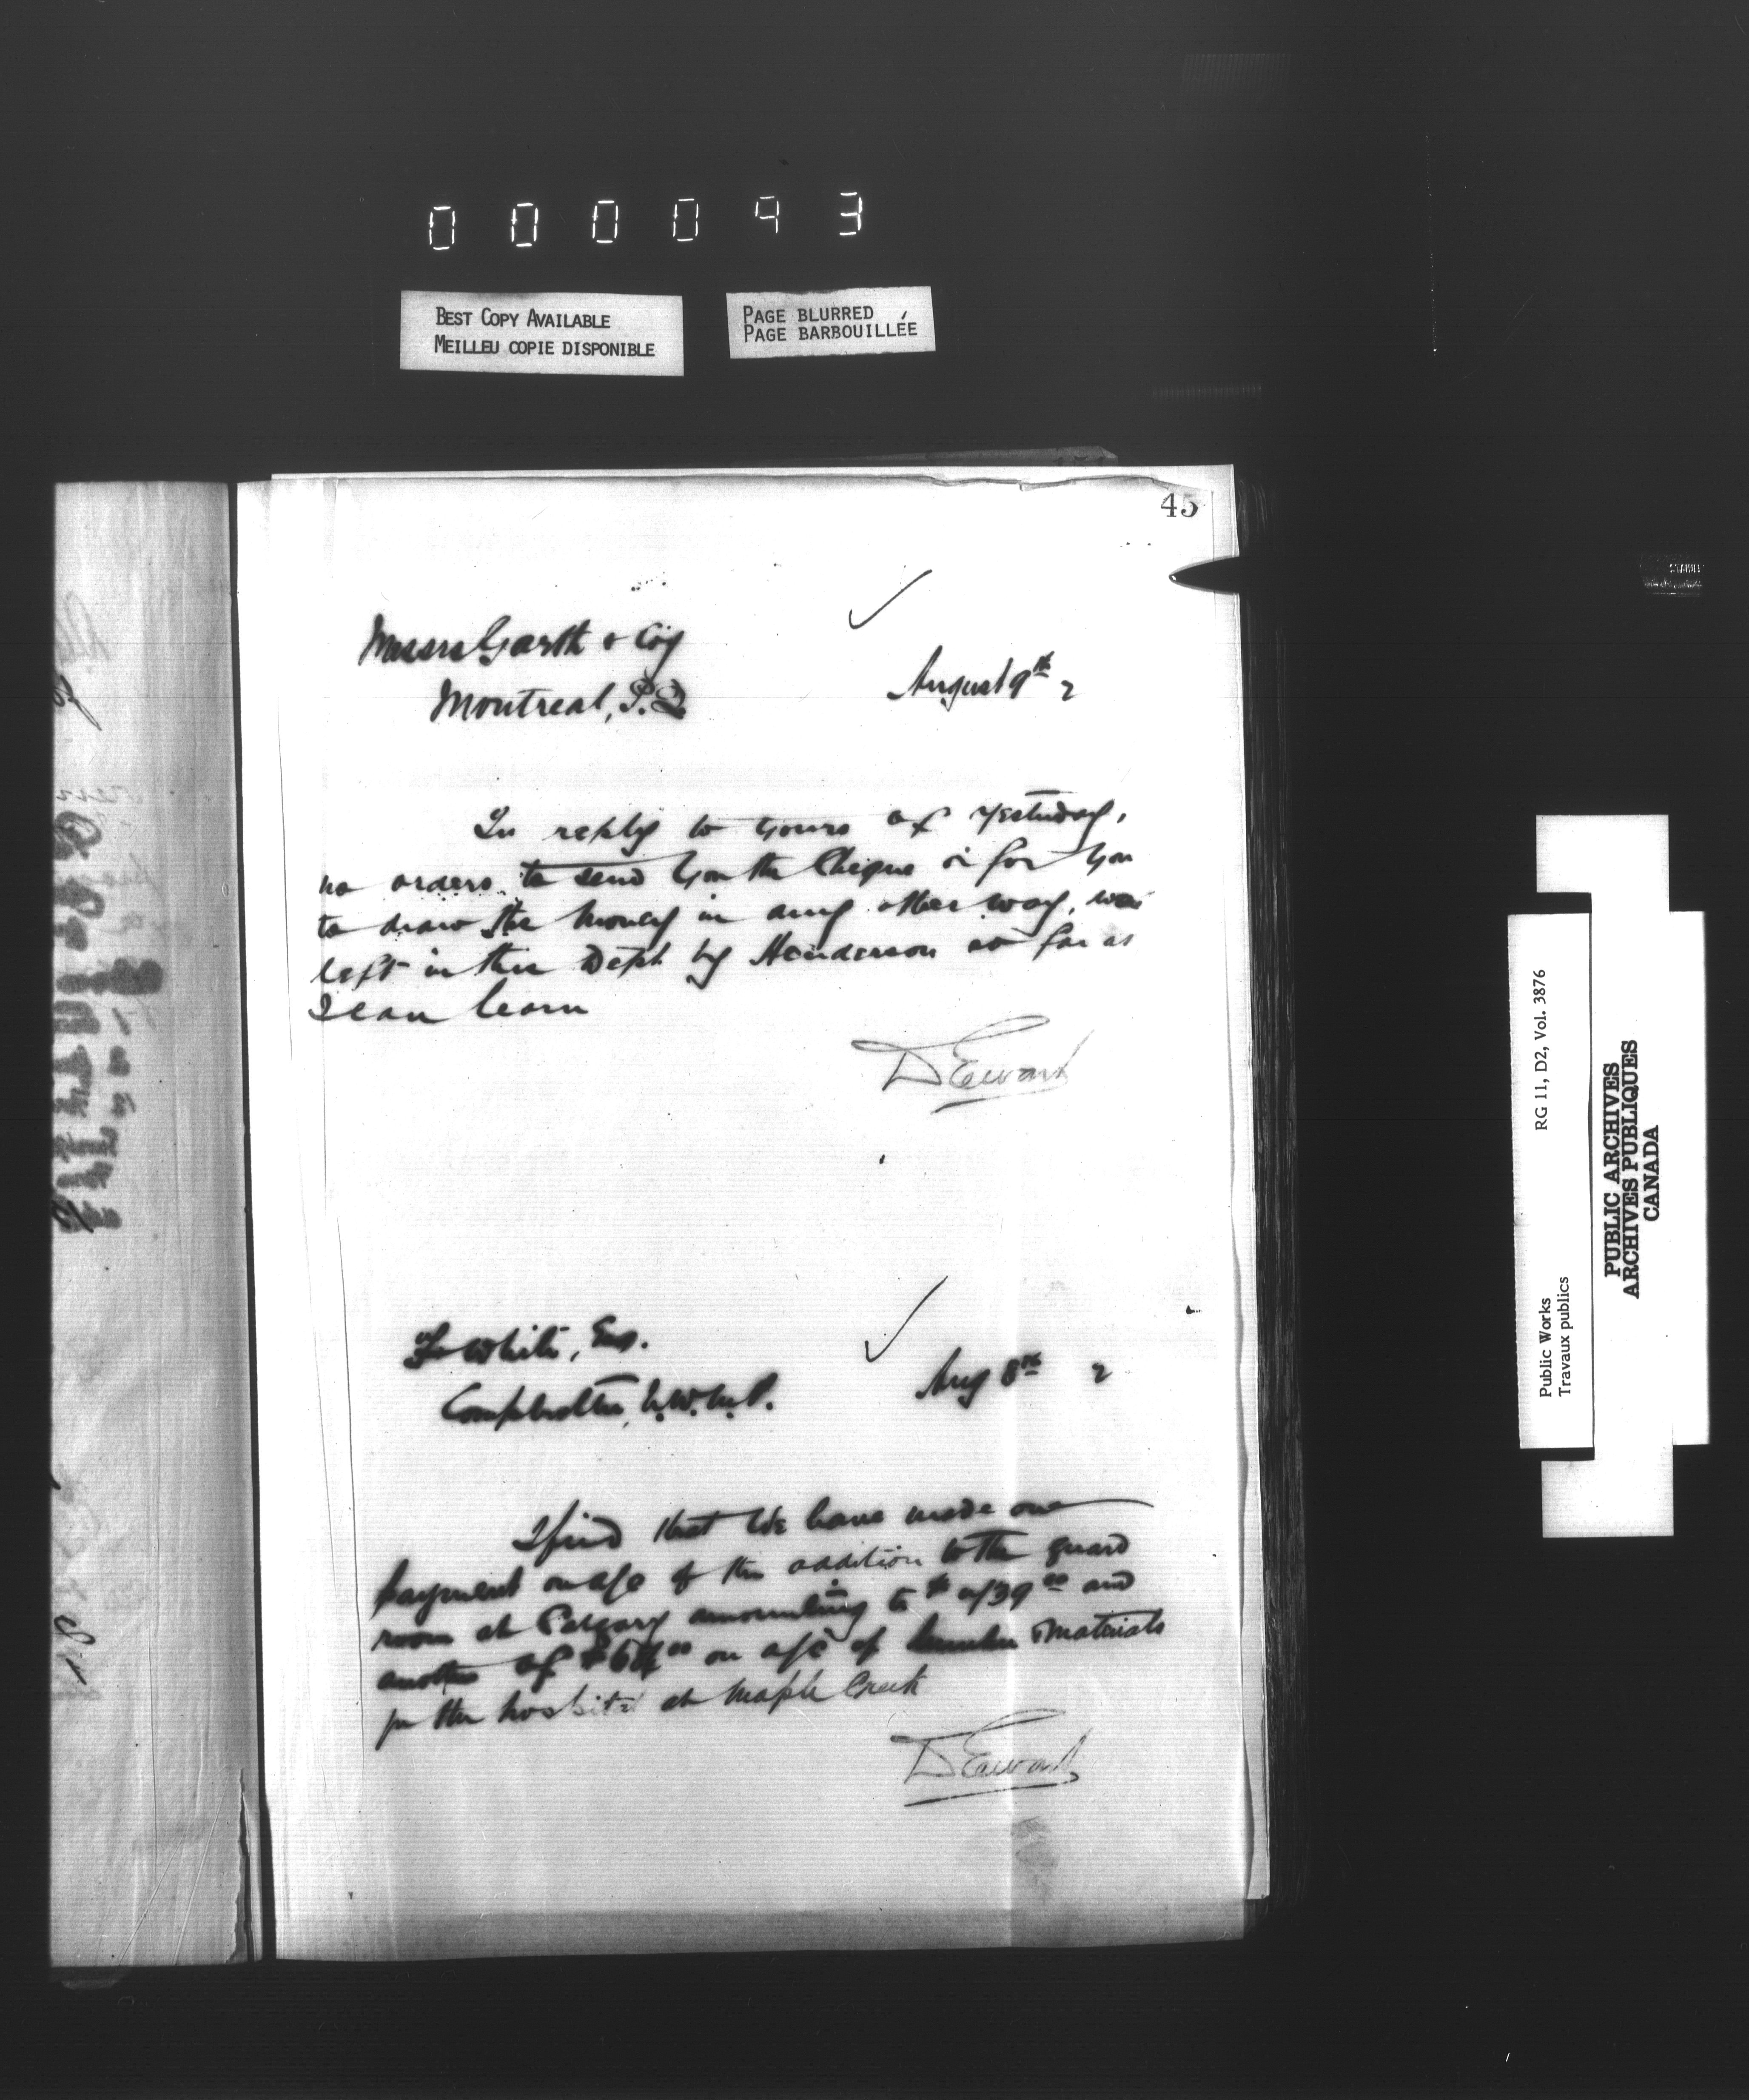 000093
BEST COPY AVAILABLE
MEILLEU COPIE DISPONIBLE
PAGE BLURRED
PAGE BARBOUILLÉE
45
Messrs Garth & Coy
Montreal, P.Q
August 9th 2
In reply to yours of yesterday,
no orders to send you the Cheque or for you
to draw the money in any other way, was
left in this Dept by Henderson so far as
I can learn
D Ewart
White, Esq.
Comptroller, N.W.M.P.
Aug 8th 2
I find that we have made one
payment on a/c of the addition to the guard
room at Calgary amounting to $ 39 00 and
another of $ 00 on a/c of materials
for the hospital at Maple Creek
D Ewart
RG 11, D2, Vol. 3876
Public Works
Travaux publics
PUBLIC ARCHIVES
ARCHIVES PUBLIQUES
CANADA